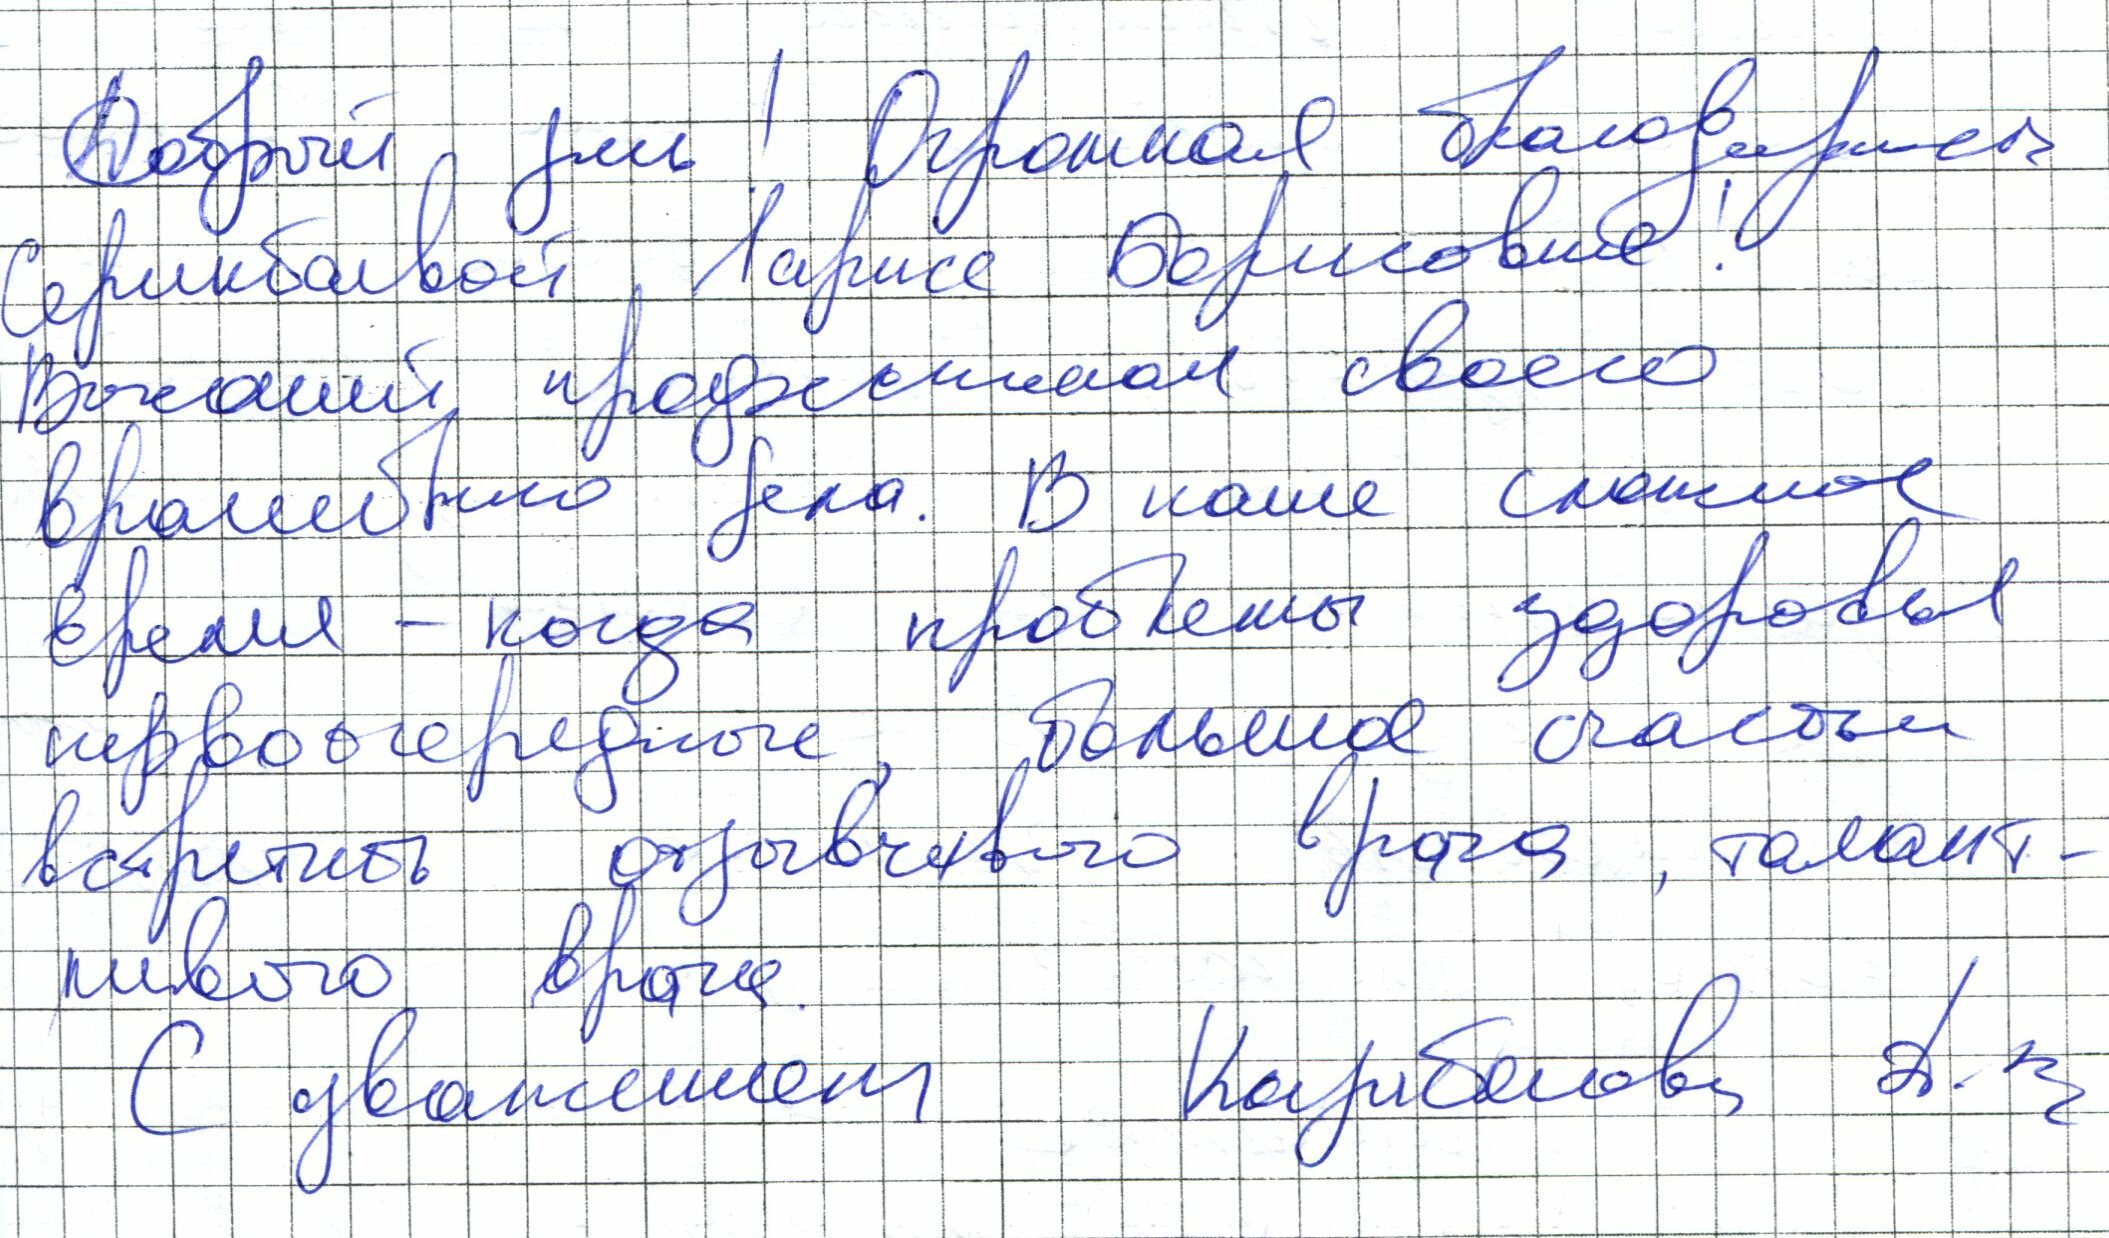 Добрый день! Огромная благодарность
Серикбаевой Ларисе Борисовне!
Высочайший профессионал своего
врачебного дела. В наше сложное
время – когда проблемы здоровья
первоочередные, большое счастье
встретить отзывчивого врача, талант-
ливого врача.
С уважением